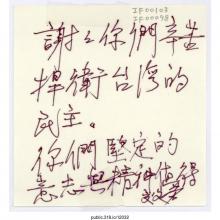 IF00103
IF00098
謝々你們辛苦
捍衛台灣的
民主。
你們堅定的
意志與精神值得
public.318.io/12033